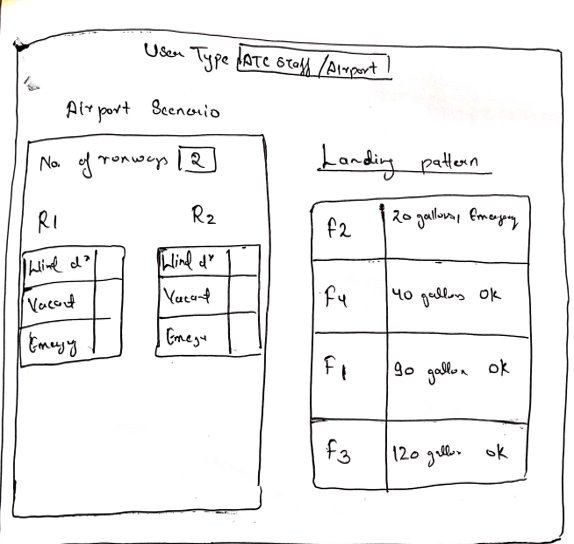 User Type ATC Staff / Airport
Airport Scenario
No. of runways 2
R1
R2
Wind dr
Vacant
Emergy
Wind dr
Vacant
Emegy
Landing pattern
F2 20 gallons, Emergency
F4 40 gallons OK
F1 90 gallon OK
F3 120 gallon OK